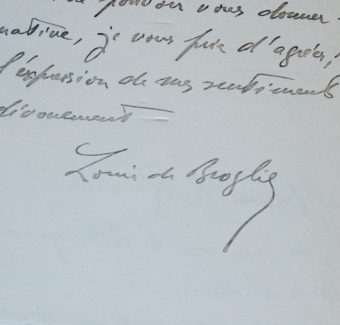 pouvoir vous donner
mative, je vous prie d'agréer,
l'expression de mes sentiments
dévouement
Louis de Broglie